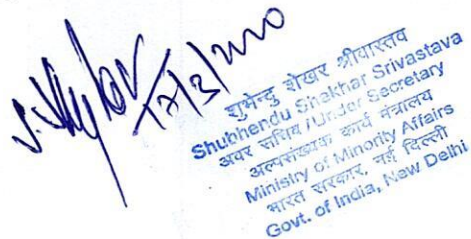 17/3/2020
शुभेन्दु शेखर श्रीवास्तव
Shubhendu Shekhar Srivastava
अवर सचिव / Under Secretary
अल्पसंख्यक कार्य मंत्रालय
Ministry of Minority Affairs
भारत सरकार, नई दिल्ली
Govt. of India, New Delhi